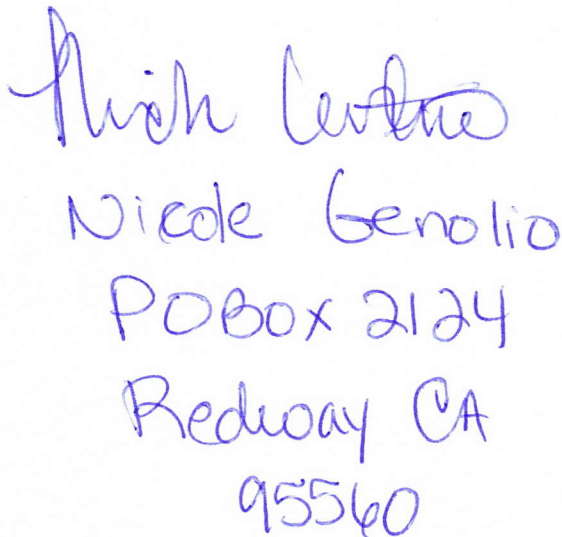 Nicole Genolio
PO Box 2124
Redway CA
95560